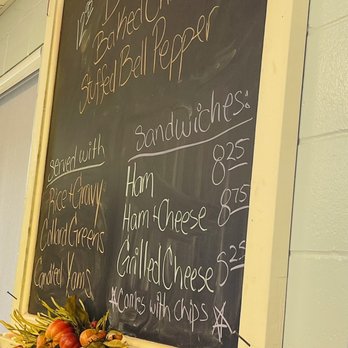 Baked
Stuffed Bell Pepper
Served with
Rice + Gravy
Collard Greens
Candied Yams
Sandwiches:
Ham 8.25
Ham + Cheese 8.75
Grilled Cheese 6.25
☆Comes with chips☆